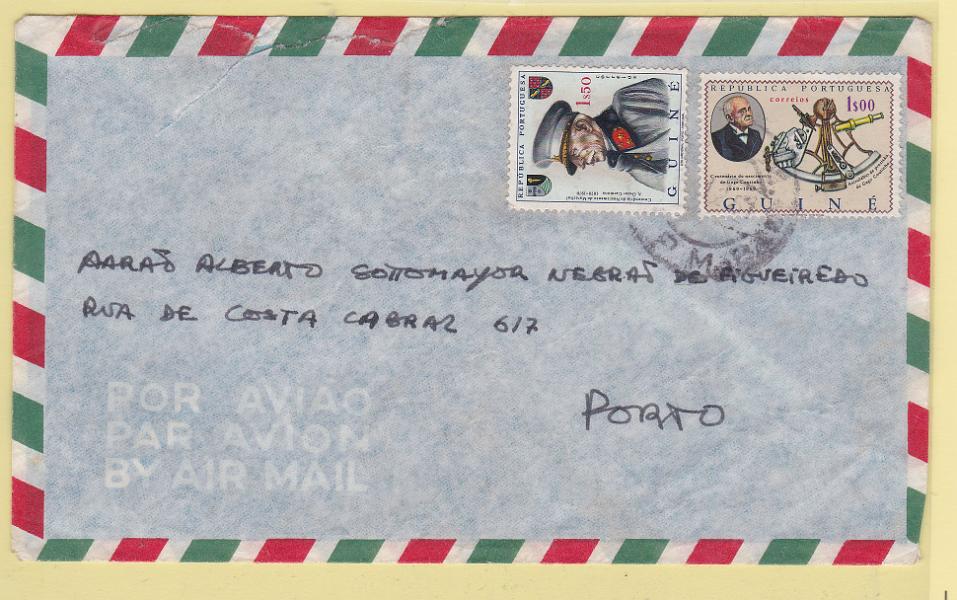 REPÚBLICA PORTUGUESA
1$50
GUINÉ
Centenário do Nascimento do Marechal
A. Óscar Carmona 1869-1970
REPÚBLICA PORTUGUESA
correios 1$00
Centenário do nascimento
de Gago Coutinho
1869-1969
GUINÉ
AARAÕ ALBERTO SOTTOMAYOR NEGRAÕ DE FIGUEIREDO
RUA DE COSTA CABRAL 617
PORTO
POR AVIÃO
PAR AVION
BY AIR MAIL